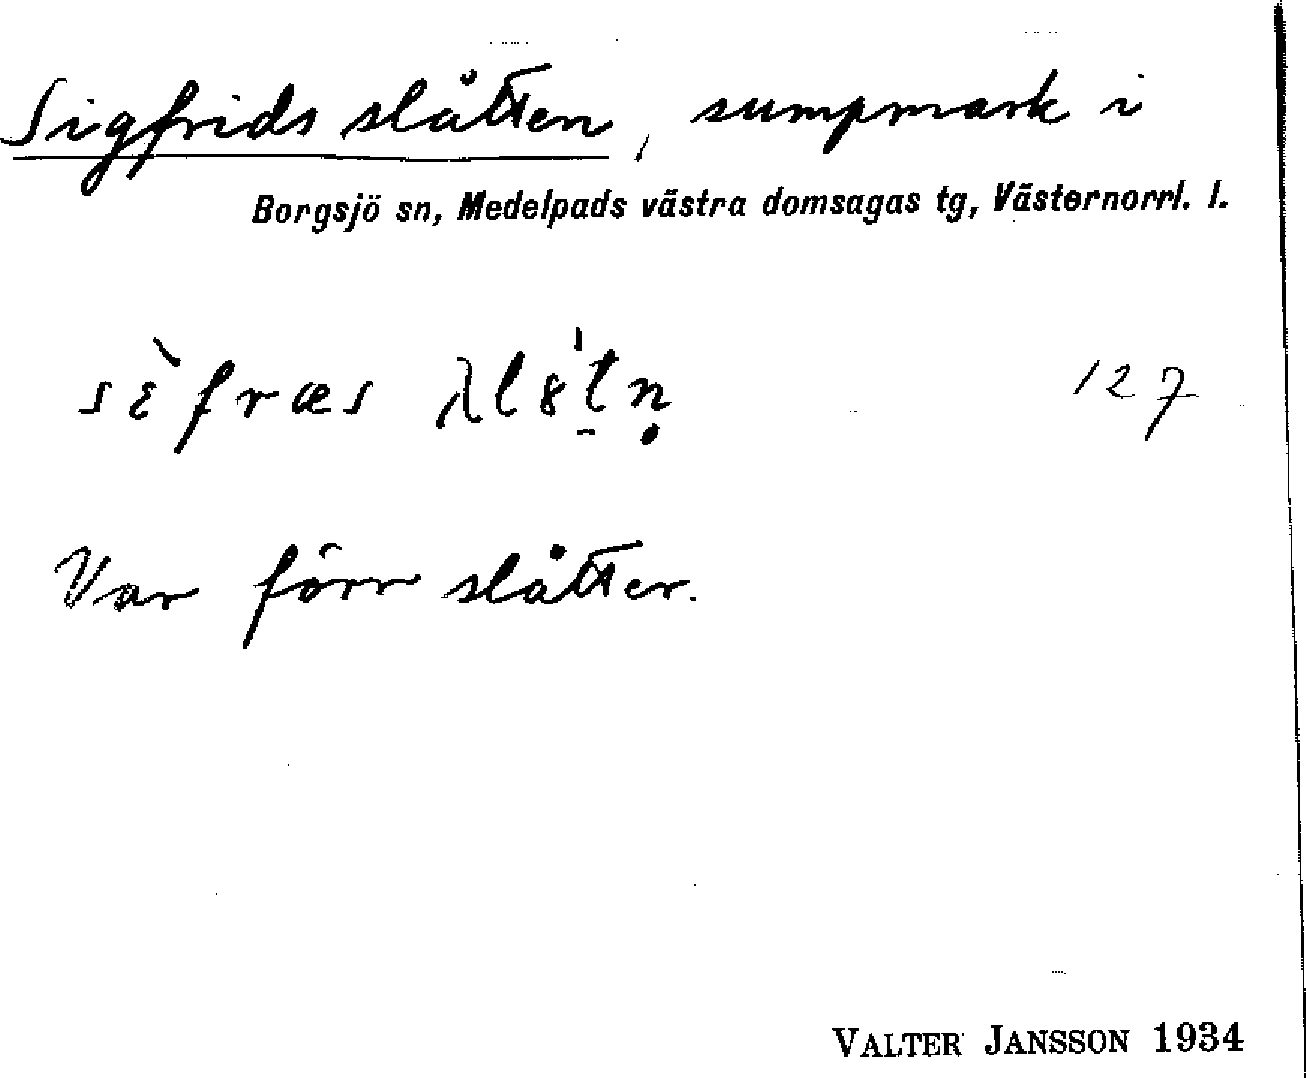 Sigfrids slåtten, sumpmark i
Borgsjö sn, Medelpads västra domsagas tg, Västernorrl. l.
127
Var förr slåtter.
VALTER JANSSON 1934